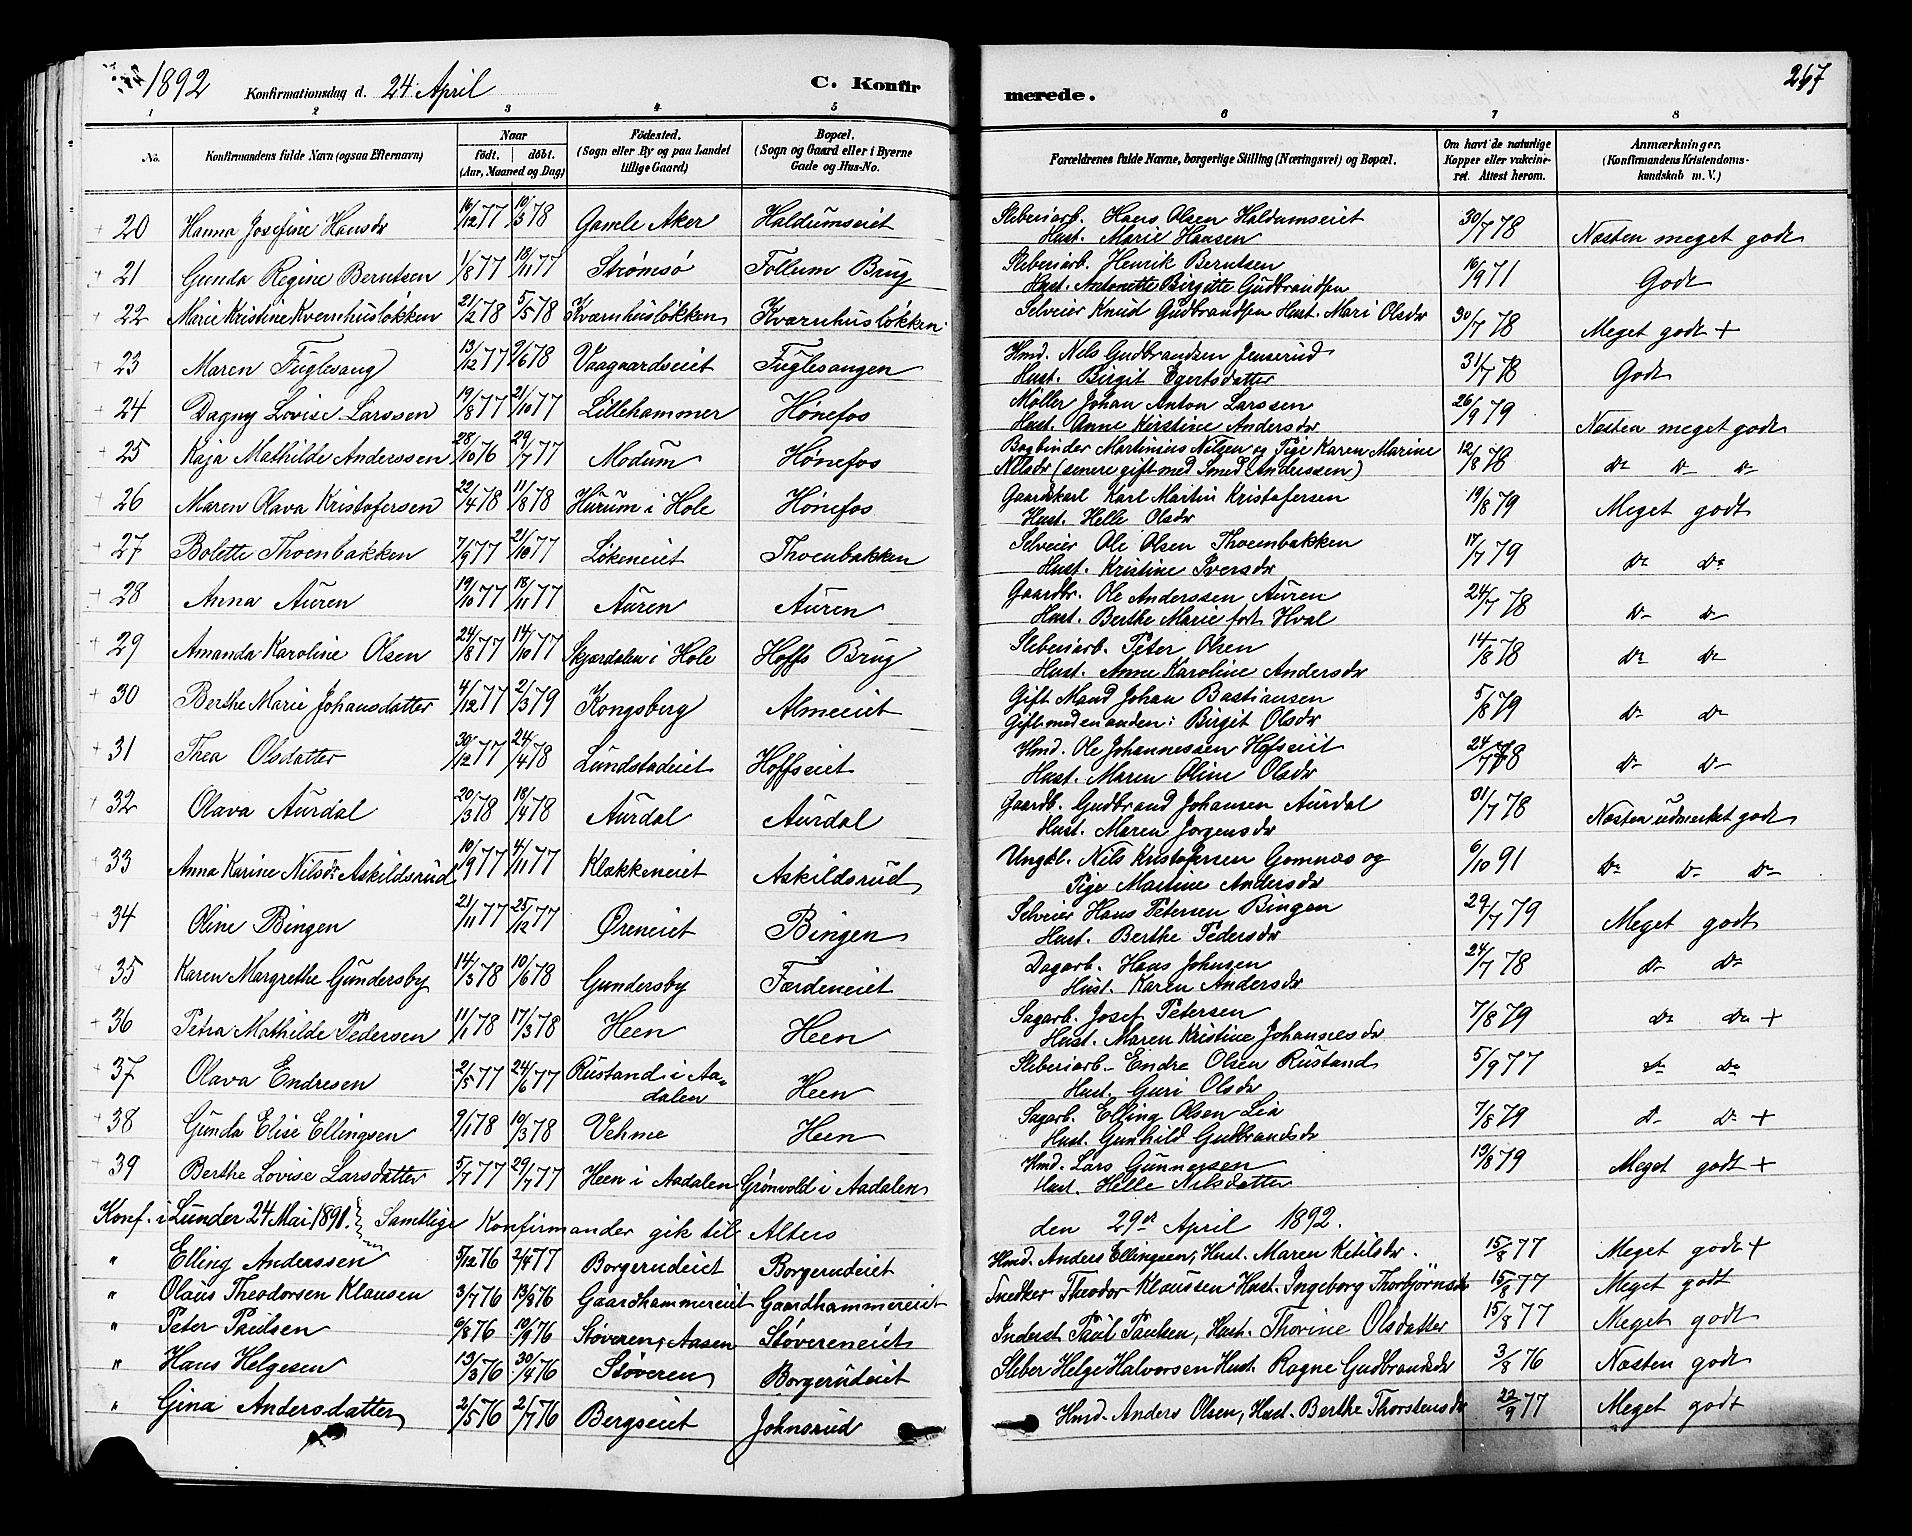 1892 Konfirmationsdag d. 24 April C. Konfirmerede. 267
1 2 3 4 5 6 7 8
No. Konfirmandens fulde Navn (ogsaa Efternavn) Naar födt. döbt. (Aar, Maaned og Dag) Födested. (Sogn eller By og paa Landet tillige Gaard) Bopæl. (Sogn og Gaard eller i Byerne Gade og Hus-No. Forældrenes fulde Navne, borgerlige Stilling (Næringsvei) og Bopæl. Om havt de naturlige Kopper eller vakcineret. Attest herom. Anmærkninger. (Konfirmandens Kristendomskundskab m. V.)
20 Hanna Josefine Hansdr 16/12 77 10/3 78 Gamle Aker Haldumseiet Sliberiarb. Hans Olsen Haldumseiet 30/7 78 Næsten meget godt
Hust. Marie Hansen
21 Gunda Regine Berntsen 1/8 77 18/11 77 Strømsø Follum Brug Sliberiarb. Henrik Berntsen 16/9 71 Godt
Hust. Antonette Birgitte Gudbrandsen
22 Marie Kristine Kvernhusløkken 21/2 78 5/5 78 Kvarnhusløkken Kvarnhusløkken Selveier Knud Gudbrandsen Hust. Mari Olsdr 30/7 78 Meget godt +
23 Maren Fuglesang 13/12 77 9/6 78 Vaagaardseiet Fuglesangen Hmd. Nils Gudbrandsen Jenserud 31/7 78 Godt
Hust. Birgit Egertsdatter
24 Dagny Lovise Larssen 19/8 77 21/10 77 Lillehammer Hønefos Møller Johan Anton Larssen 26/9 79 Næsten meget godt
Hust. Anne Kirstine Andersdr
25 Kaja Mathilde Anderssen 28/10 76 29/7 77 Modum Hønefos Bogbinder Martinius Nilsen og Pige Karen Marine 12/8 78 Do Do Do
Nilsdr (senere gift med Smed Anderssen)
26 Maren Olava Kristofersen 22/4 78 11/8 78 Hurum i Hole Hønefos Gaardskarl Karl Martin Kristofersen 19/8 79 Meget godt
Hust. Helle Olsdr
27 Bolette Thoenbakken 7/9 77 21/10 77 Lökeneiet Thoenbakken Selveier Ole Olsen Thoenbakken 17/7 79 Do Do
Hust. Kristine Iversdr
28 Anna Auren 19/10 77 18/11 77 Auren Auren Gaardbr. Ole Anderssen Auren 24/7 78 Do Do
Hust. Berthe Marie født Hval
29 Amanda Karoline Olsen 24/8 77 14/10 77 Skjærdalen i Hole Hoffs Brug Sliberiarb. Peter Olsen 14/8 78 Do Do
Hust. Anne Karoline Andersdr
30 Berthe Marie Johansdatter 4/12 77 2/3 79 Kongsberg Almeiet Gift Mand Johan Bastiansen 5/8 79 Do Do
Gift med en anden: Birgit Olsdr
31 Thea Olsdatter 30/12 77 24/4 78 Lundstadeiet Hoffseiet Hmd. Ole Johannessen Hofseiet 24/7 78 Do Do
Hust. Maren Oline Olsdr
32 Olava Aurdal 20/3 78 18/4 78 Aurdal Aurdal Gaardb. Gudbrand Johansen Aurdal 31/7 78 Næsten udmerket godt
Hust. Maren Jørgensdr
33 Anna Karine Nilsdr Askildsrud 10/9 77 4/11 77 Klækkeneiet Askildsrud Ungkl. Nils Kristofersen Gomnæs og 6/10 91 Do Do Do
Pige Martine Andersdr
34 Oline Bingen 21/11 77 25/12 77 Øreneiet Bingen Selveier Hans Petersen Bingen 29/7 79 Meget godt
Hust. Berthe Pedersdr
35 Karen Margrethe Gundersby 14/3 78 10/6 78 Gundersby Færdeneiet Dagarb. Hans Johnsen 24/7 78 Do Do
Hust. Karen Andersdr
36 Petra Mathilde Pedersen 11/1 78 17/3 78 Heen Heen Sagarb. Josef Petersen 7/8 79 Do Do +
Hust. Maren Kristine Johannesdr
37 Olava Endresen 2/5 77 24/6 77 Rustand i Aadalen Heen Sliberiarb. Endre Olsen Rustand 5/9 77 Do Do
Hust. Guri Olsdr
38 Gunda Elise Ellingsen 9/1 78 10/3 78 Vehme Heen Sagarb. Elling Olsen Lia 7/8 79 Do Do +
Hust. Gunhild Gudbrandsdr
39 Berthe Lovise Larsdatter 5/7 77 29/7 77 Heen i Aadalen Grønvold i Aadalen Hmd. Lars Gunnersen 19/8 79 Meget godt +
Hust. Helle Nilsdatter
Konf. i Lunder 24 Mai 1891. Samtlige Konfirmander gik til Alters den 29de April 1892.
" Elling Anderssen 5/12 76 2/4 77 Borgerudeiet Borgerudeiet Hmd. Anders Ellingsen, Hust. Maren Ketilsdr. 15/8 77 Meget godt +
" Olaus Theodorsen Klausen 3/7 76 13/8 76 Gaardhammereiet Gaardhammereiet Snedker Theodor Klaussen Hust. Ingeborg Thorbjørnsdr 15/8 77 Meget godt
" Peter Paulsen 6/8 76 10/9 76 Støveren, Aasen Støvereneiet Inderst Paul Paulsen, Hust. Thorine Olsdatter 15/8 77 Meget godt
" Hans Helgesen 13/3 76 30/4 76 Støveren Borgerudeiet Sliber Helge Halvorsen Hust. Ragne Gudbrandsdr 3/8 76 Næsten godt
" Gina Andersdatter 2/5 76 2/7 76 Bergseiet Johnsrud Hmd. Anders Olsen, Hust. Berthe Thorstensdr 22/9 77 Meget godt